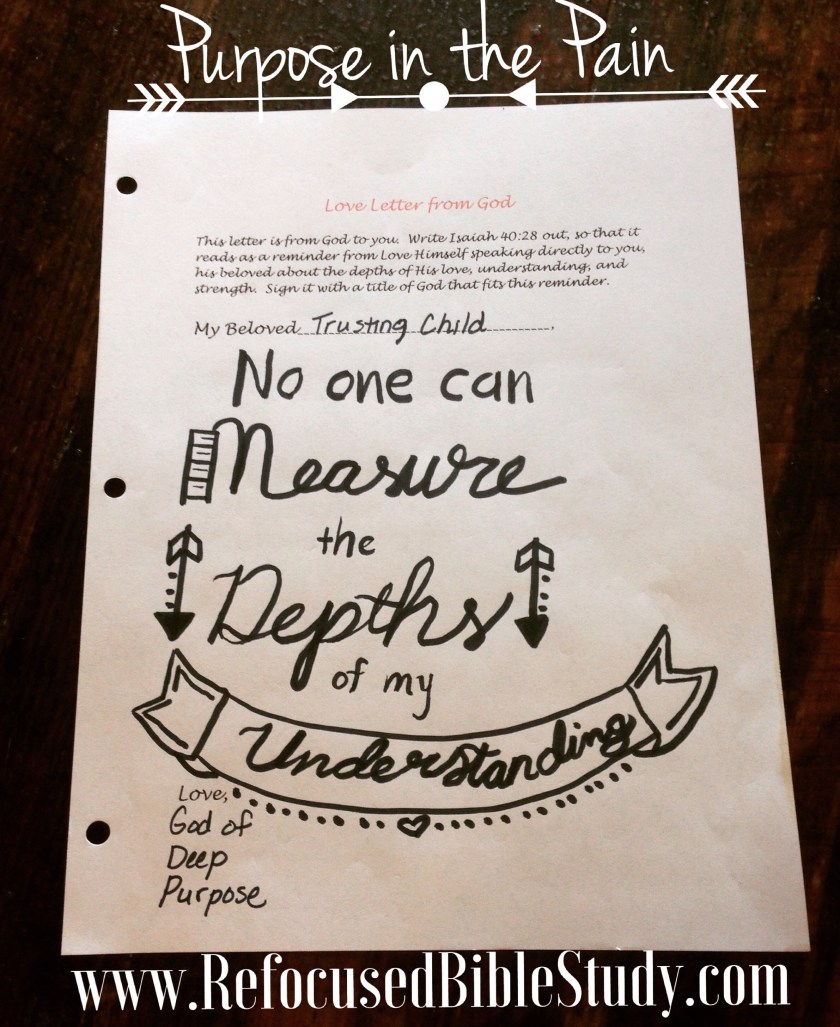 Purpose in the Pain
Love Letter from God
This letter is from God to you. Write Isaiah 40:28 out, so that it
reads as a reminder from Love Himself speaking directly to you,
his beloved about the depths of His love, understanding, and
strength. Sign it with a title of God that fits this reminder.
My Beloved Trusting Child,
No one can
Measure
the
Depths
of my
Understanding
Love,
God of
Deep
Purpose
www.RefocusedBibleStudy.com